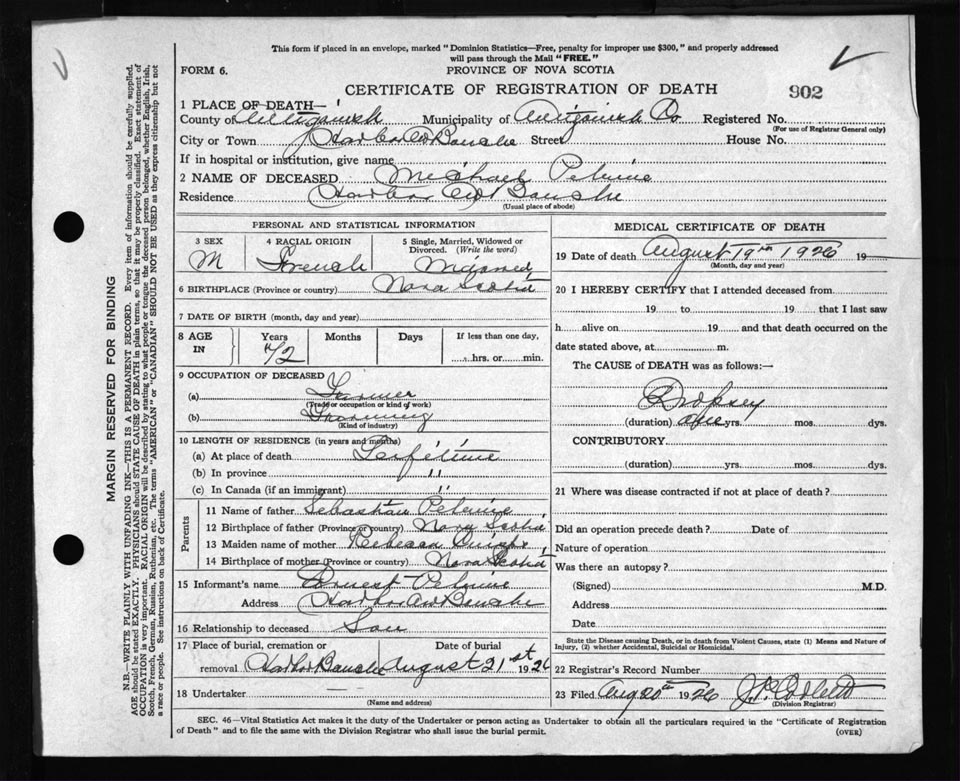 This form if placed in an envelope, marked "Dominion Statistics—Free, penalty for improper use $300," and properly addressed
will pass through the Mail "FREE."
FORM 6.
PROVINCE OF NOVA SCOTIA
CERTIFICATE OF REGISTRATION OF DEATH
902
1 PLACE OF DEATH—
County of Antigonish Municipality of Antigonish Co Registered No.
(For use of Registrar General only)
City or Town Harbor Au Bouche Street House No.
If in hospital or institution, give name
2 NAME OF DECEASED Michael
Residence Harbor Au Bouche
(Usual place of abode)
PERSONAL AND STATISTICAL INFORMATION
3 SEX M
4 RACIAL ORIGIN French
5 Single, Married, Widowed or Divorced. (Write the word) Married
6 BIRTHPLACE (Province or country) Nova Scotia
7 DATE OF BIRTH (month, day and year)
8 AGE IN Years Months Days If less than one day, hrs. or min.
72
9 OCCUPATION OF DECEASED
(a) Farmer
(Trade or occupation or kind of work)
(b) Farming
(Kind of industry)
10 LENGTH OF RESIDENCE (in years and months)
(a) At place of death Lifetime
(b) In province "
(c) In Canada (if an immigrant) "
Parents
11 Name of father Sebastian
12 Birthplace of father (Province or country) Nova Scotia
13 Maiden name of mother Rebecca
14 Birthplace of mother (Province or country) Nova Scotia
15 Informant's name Ernest
Address Harbor Au Bouche
16 Relationship to deceased Son
17 Place of burial, cremation or removal Harbor Bouche Date of burial August 21st 1926
18 Undertaker —
(Name and address)
MEDICAL CERTIFICATE OF DEATH
19 Date of death August 19th 1926 19
(Month, day and year)
20 I HEREBY CERTIFY that I attended deceased from
19 to 19 that I last saw
h alive on 19 and that death occurred on the
date stated above, at m.
The CAUSE of DEATH was as follows:—
Dropsey
(duration) one yrs. mos. dys.
CONTRIBUTORY
(duration) yrs. mos. dys.
21 Where was disease contracted if not at place of death?
Did an operation precede death? Date of
Nature of operation
Was there an autopsy?
(Signed) M.D.
Address
Date
State the Disease causing Death, or in death from Violent Causes, state (1) Means and Nature of
Injury, (2) whether Accidental, Suicidal or Homicidal.
22 Registrar's Record Number
23 Filed Aug 20th 1926
(Division Registrar)
SEC. 46—Vital Statistics Act makes it the duty of the Undertaker or person acting as Undertaker to obtain all the particulars required in the "Certificate of Registration
of Death" and to file the same with the Division Registrar who shall issue the burial permit.
(OVER)
MARGIN RESERVED FOR BINDING
N.B.—WRITE PLAINLY WITH UNFADING INK—THIS IS A PERMANENT RECORD. Every item of information should be carefully supplied.
AGE should be stated EXACTLY. PHYSICIANS should STATE CAUSE OF DEATH in plain terms, so that it may be properly classified. Exact statement of
OCCUPATION is very important. RACIAL ORIGIN will be described by stating to what people or tongue the deceased person belonged, whether English, Irish,
Scotch, French, German, Russian, Ruthenian, etc. The terms "AMERICAN" or "CANADIAN" SHOULD NOT BE USED as they express citizenship but not
a race or people. See instructions on back of Certificate.